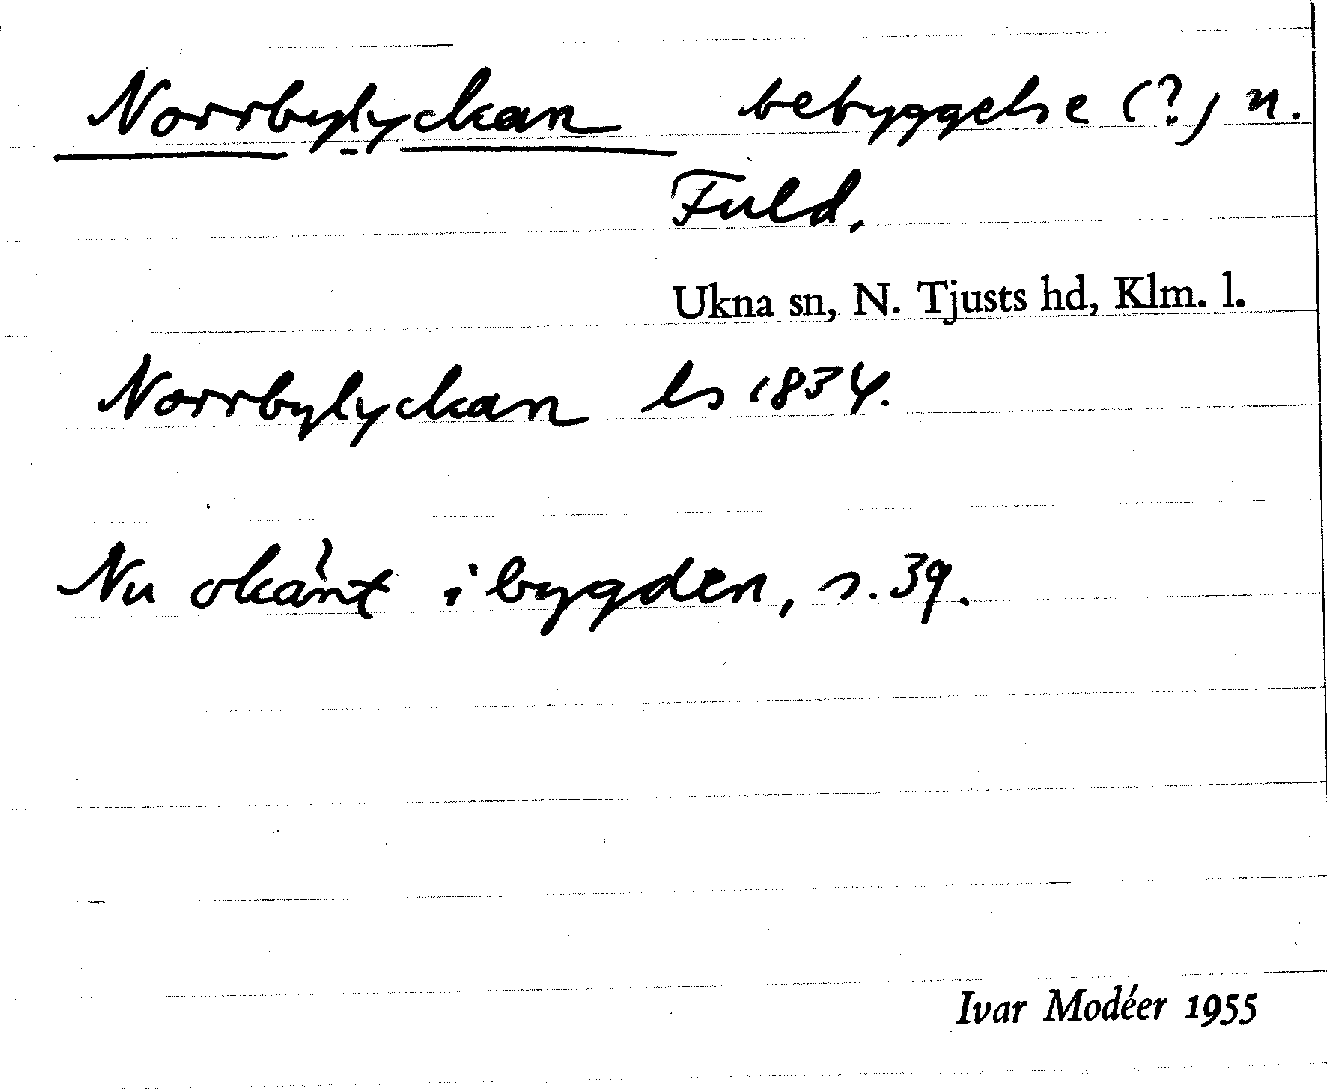 Norrbylyckan bebyggelse (?) n.
Fuld.
Ukna sn, N. Tjusts hd, Klm. l.
Norrbylyckan ls 1834.
Nu okänt i bygden, s. 39.
Ivar Modéer 1955